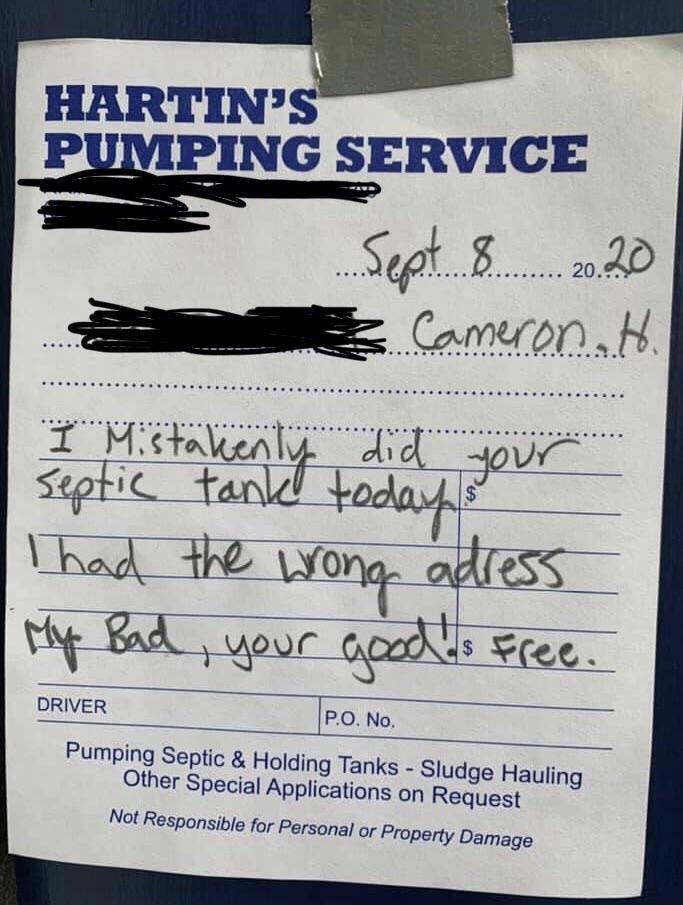 HARTIN'S
PUMPING SERVICE
Sept 8 2020
Cameron. H.
I Mistakenly did your
septic tank today $
I had the wrong adress
My Bad, your good! $ Free.
DRIVER P.O. No.
Pumping Septic & Holding Tanks - Sludge Hauling
Other Special Applications on Request
Not Responsible for Personal or Property Damage